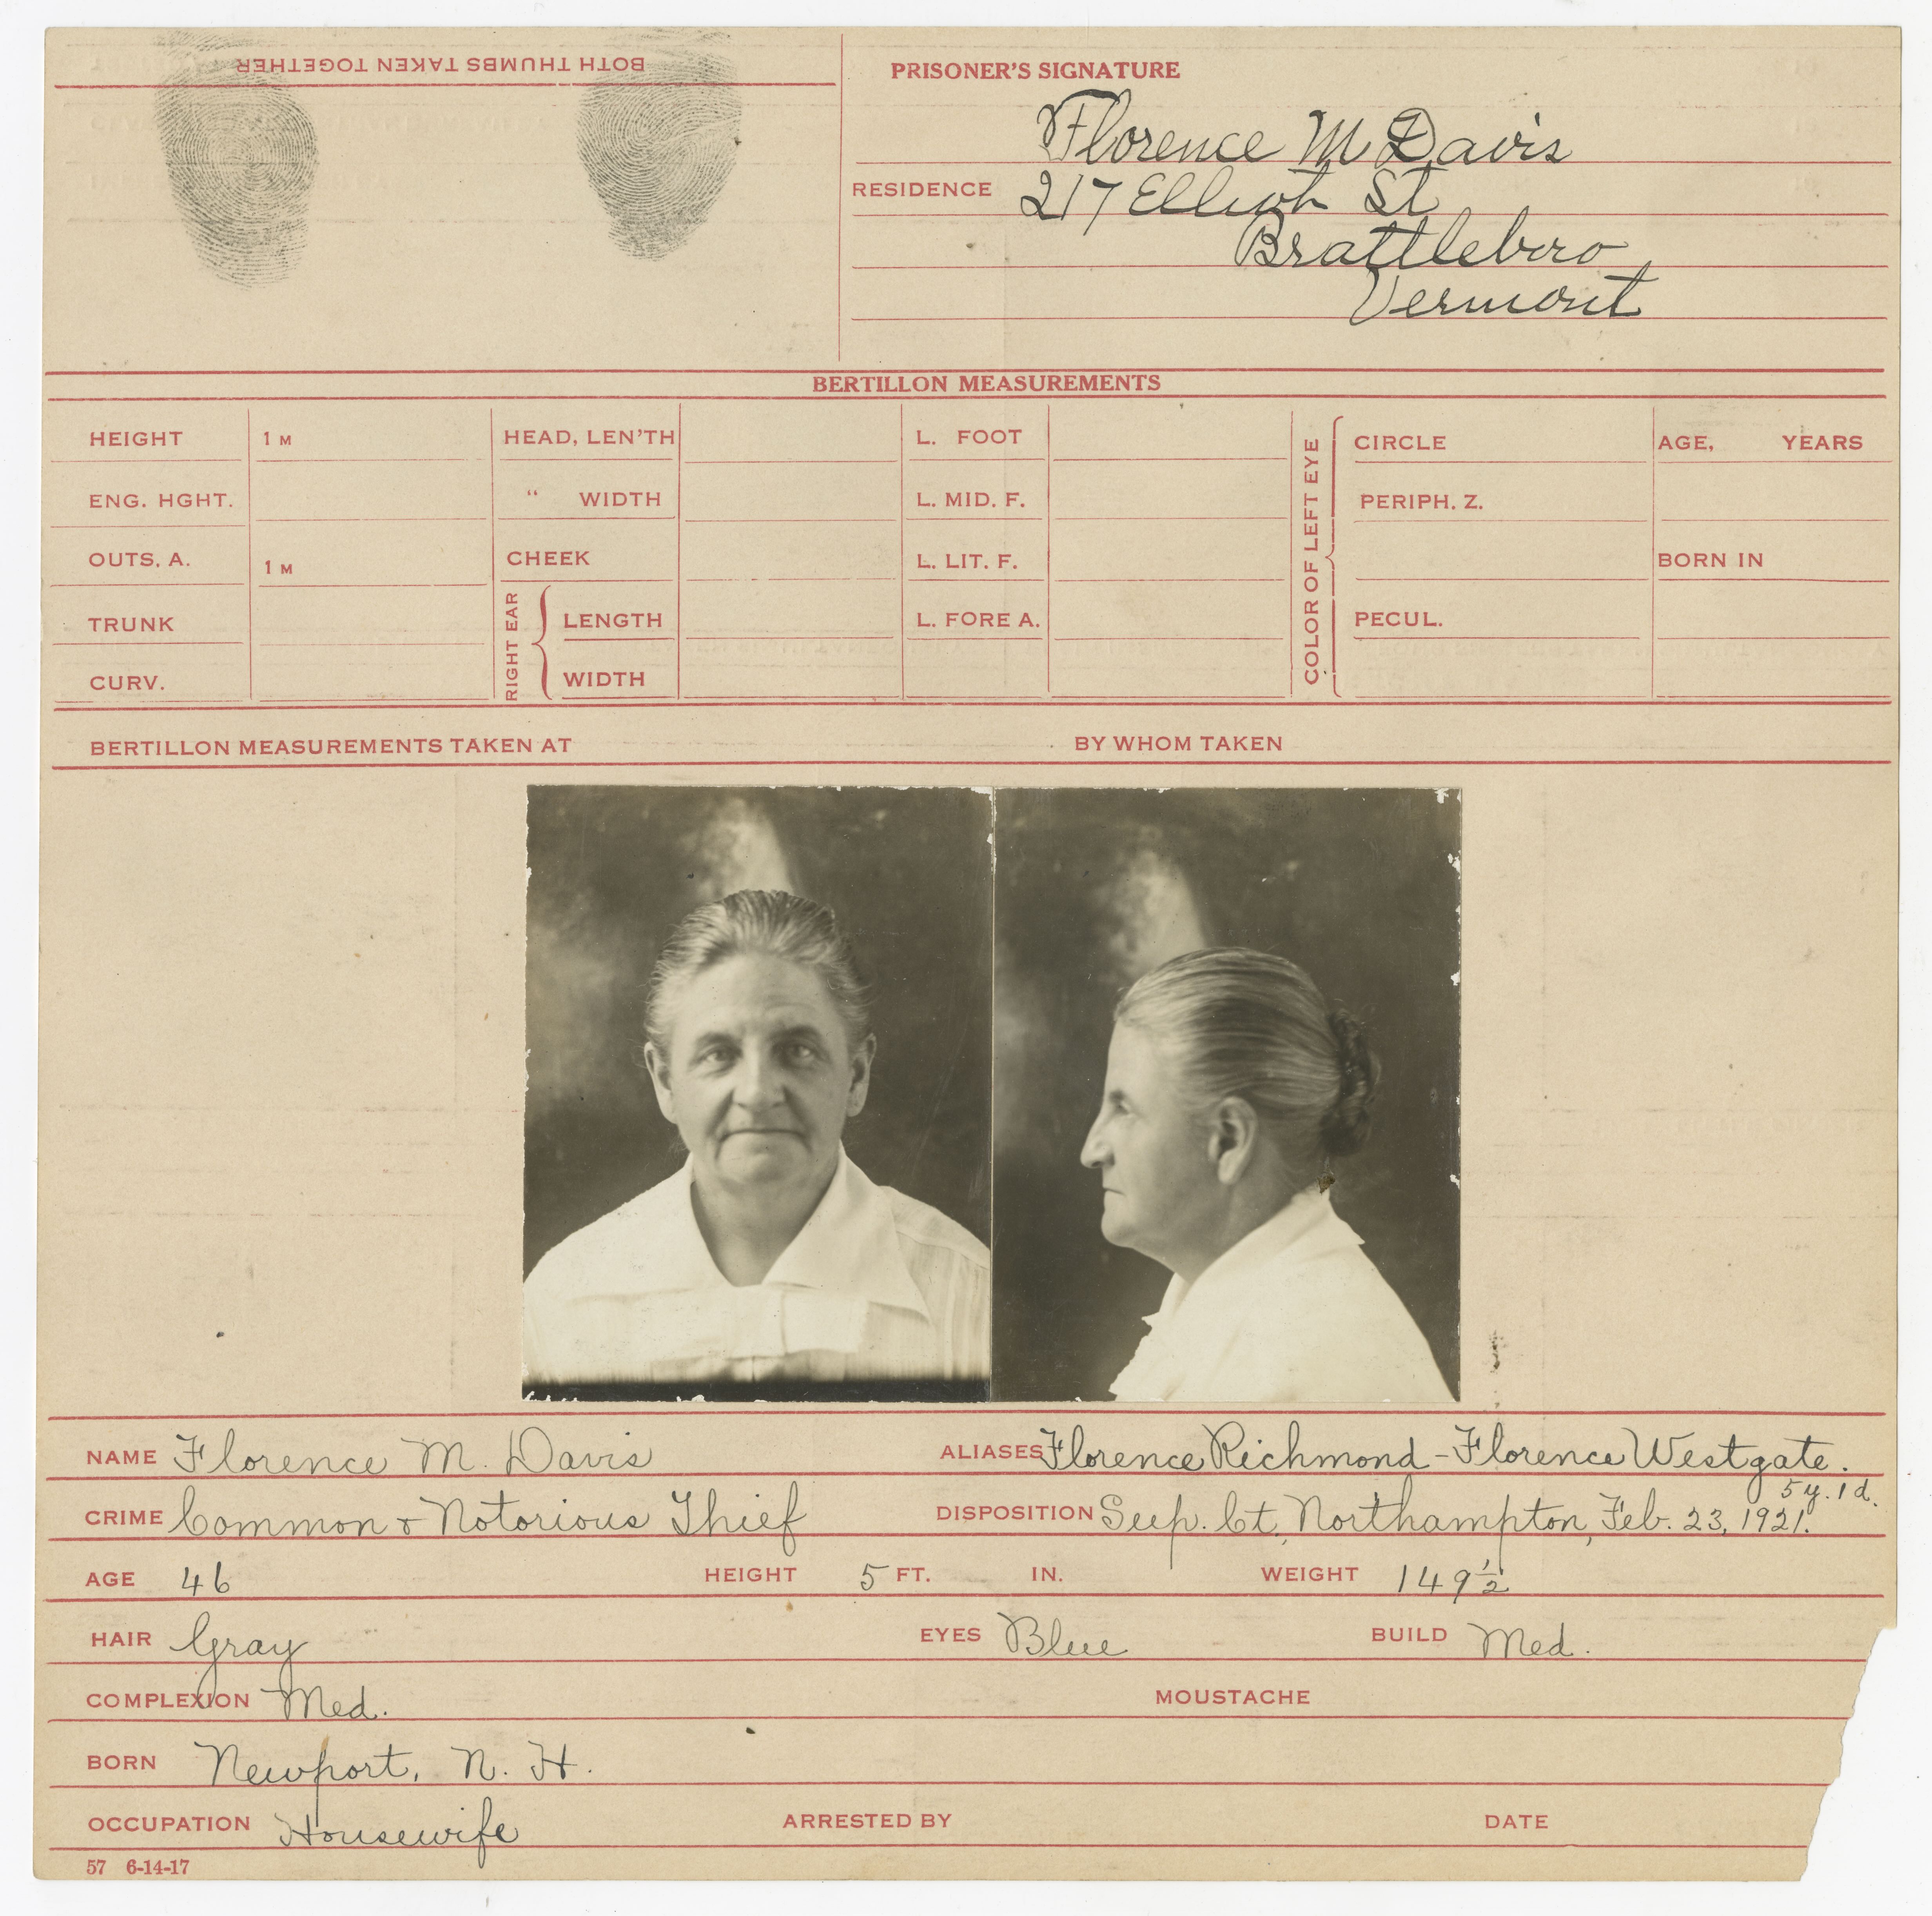 BOTH THUMBS TAKEN TOGETHER
PRISONER'S SIGNATURE
Florence M Davis
RESIDENCE 217 Elliot St
Brattleboro
Vermont
BERTILLON MEASUREMENTS
HEIGHT 1 M HEAD, LEN'TH L. FOOT CIRCLE AGE, YEARS
ENG. HGHT. " WIDTH L. MID. F. PERIPH. Z.
OUTS. A. 1 M CHEEK L. LIT. F. BORN IN
TRUNK LENGTH L. FORE A. PECUL.
CURV. WIDTH
RIGHT EAR
COLOR OF LEFT EYE
BERTILLON MEASUREMENTS TAKEN AT BY WHOM TAKEN
NAME Florence M. Davis ALIASES Florence Richmond - Florence Westgate.
5 y. 1 d.
CRIME Common & Notorious Thief DISPOSITION Sup. Ct, Northampton, Feb. 23, 1921.
AGE 46 HEIGHT 5 FT. IN. WEIGHT 149 1/2
HAIR Gray EYES Blue BUILD Med.
COMPLEXION Med. MOUSTACHE
BORN Newport, N. H.
OCCUPATION Housewife ARRESTED BY DATE
57 6-14-17